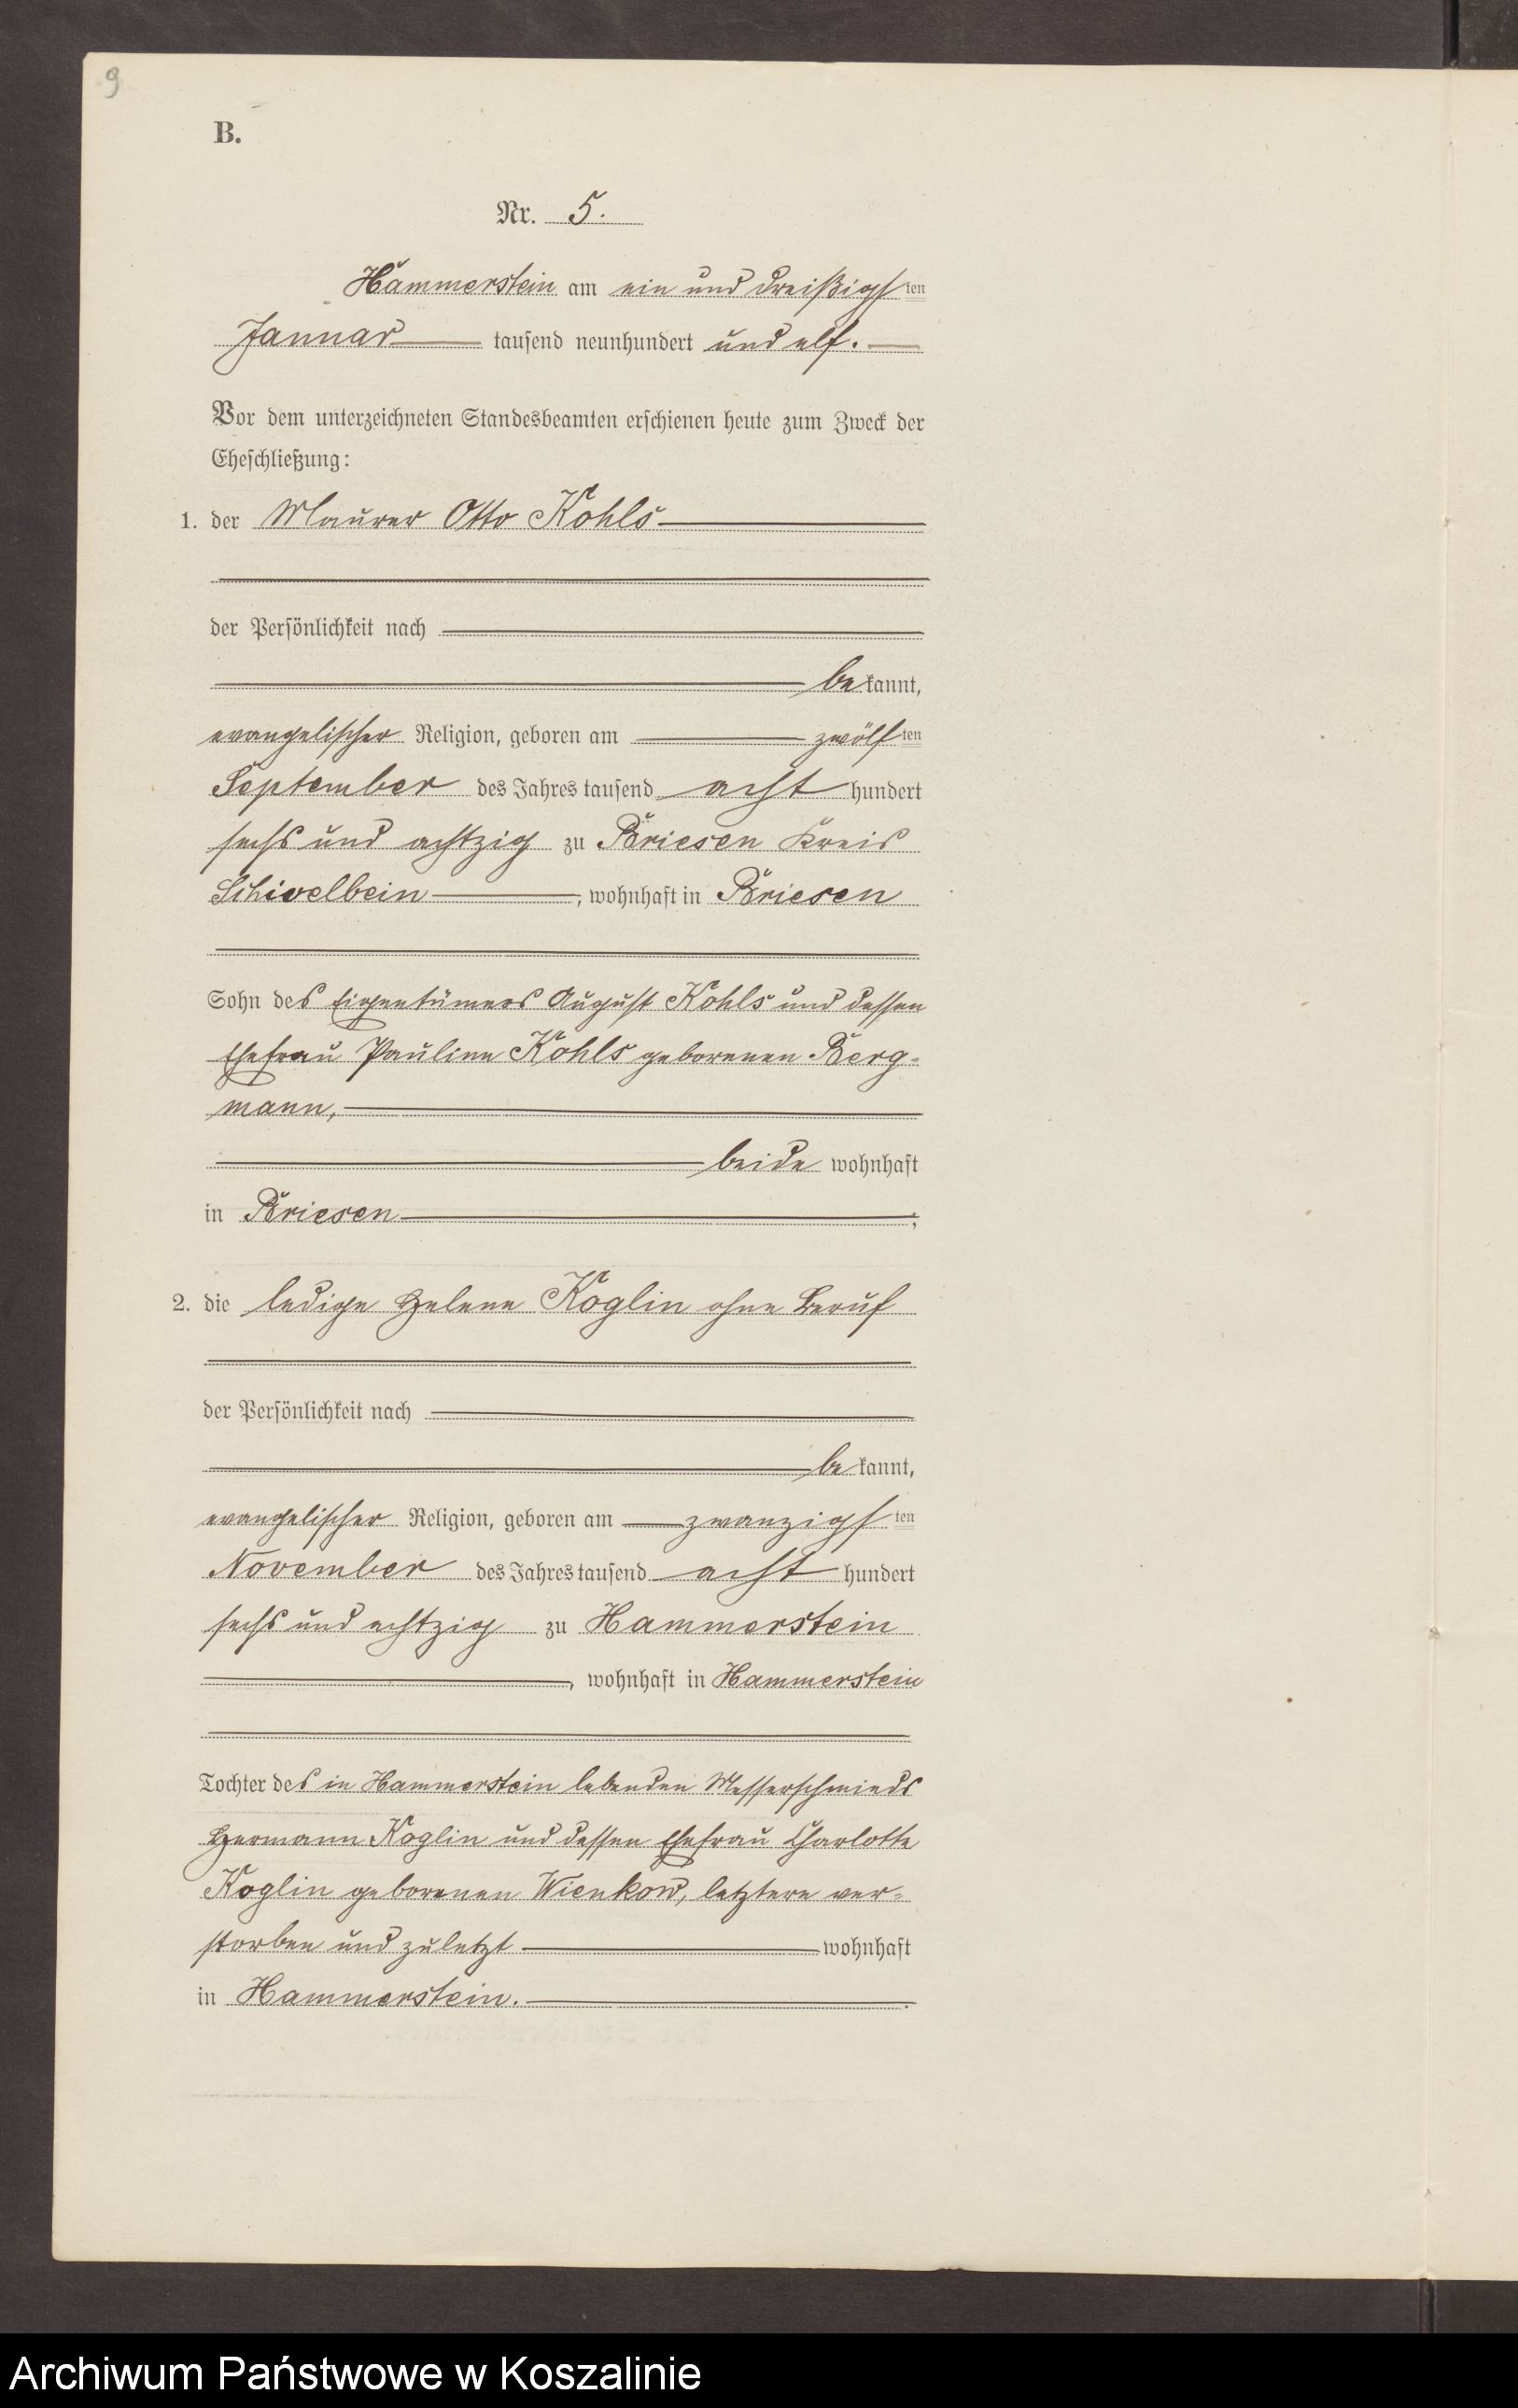 9
B.
Nr. 5.
Hammerstein am ein und dreißigsten
Januar tausend neunhundert und elf.
Vor dem unterzeichneten Standesbeamten erschienen heute zum Zweck der
Eheschließung:
1. der Maurer Otto Kohls
der Persönlichkeit nach
bekannt,
evangelischer Religion, geboren am zwölften
September des Jahres tausend acht hundert
sechs und achtzig zu Briesen Kreis
Schivelbein, wohnhaft in Briesen
Sohn des Eigentümers August Kohls und dessen
Ehefrau Pauline Kohls geborenen Berg-
mann,
beide wohnhaft
in Briesen;
2. die ledige Helene Koglin ohne Beruf
der Persönlichkeit nach
bekannt,
evangelischer Religion, geboren am zwanzigsten
November des Jahres tausend acht hundert
sechs und achtzig zu Hammerstein
, wohnhaft in Hammerstein
Tochter des in Hammerstein lebenden Messerschmieds
Hermann Koglin und dessen Ehefrau Charlotte
Koglin geborenen Wienkow, letztere ver-
storben und zuletzt wohnhaft
in Hammerstein.
Archiwum Państwowe w Koszalinie